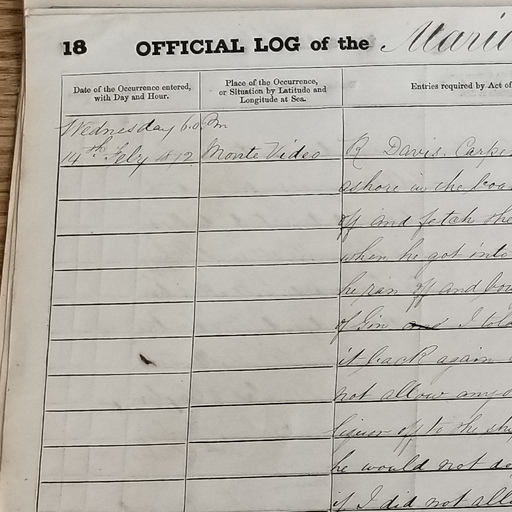 18 OFFICIAL LOG of the Mario
Date of the Occurrence entered, with Day and Hour.
Place of the Occurrence, or Situation by Latitude and Longitude at Sea.
Entries required by Act of
Wednesday 6.0 Pm
14th Feby Monte Video R Davis. Carpe
ashore in the boa
off and fetch the
when he got into
he ran off and bou
of Gin and I told
it back again
not allow any
liquor off to the shi
he would not do
if I did not allo